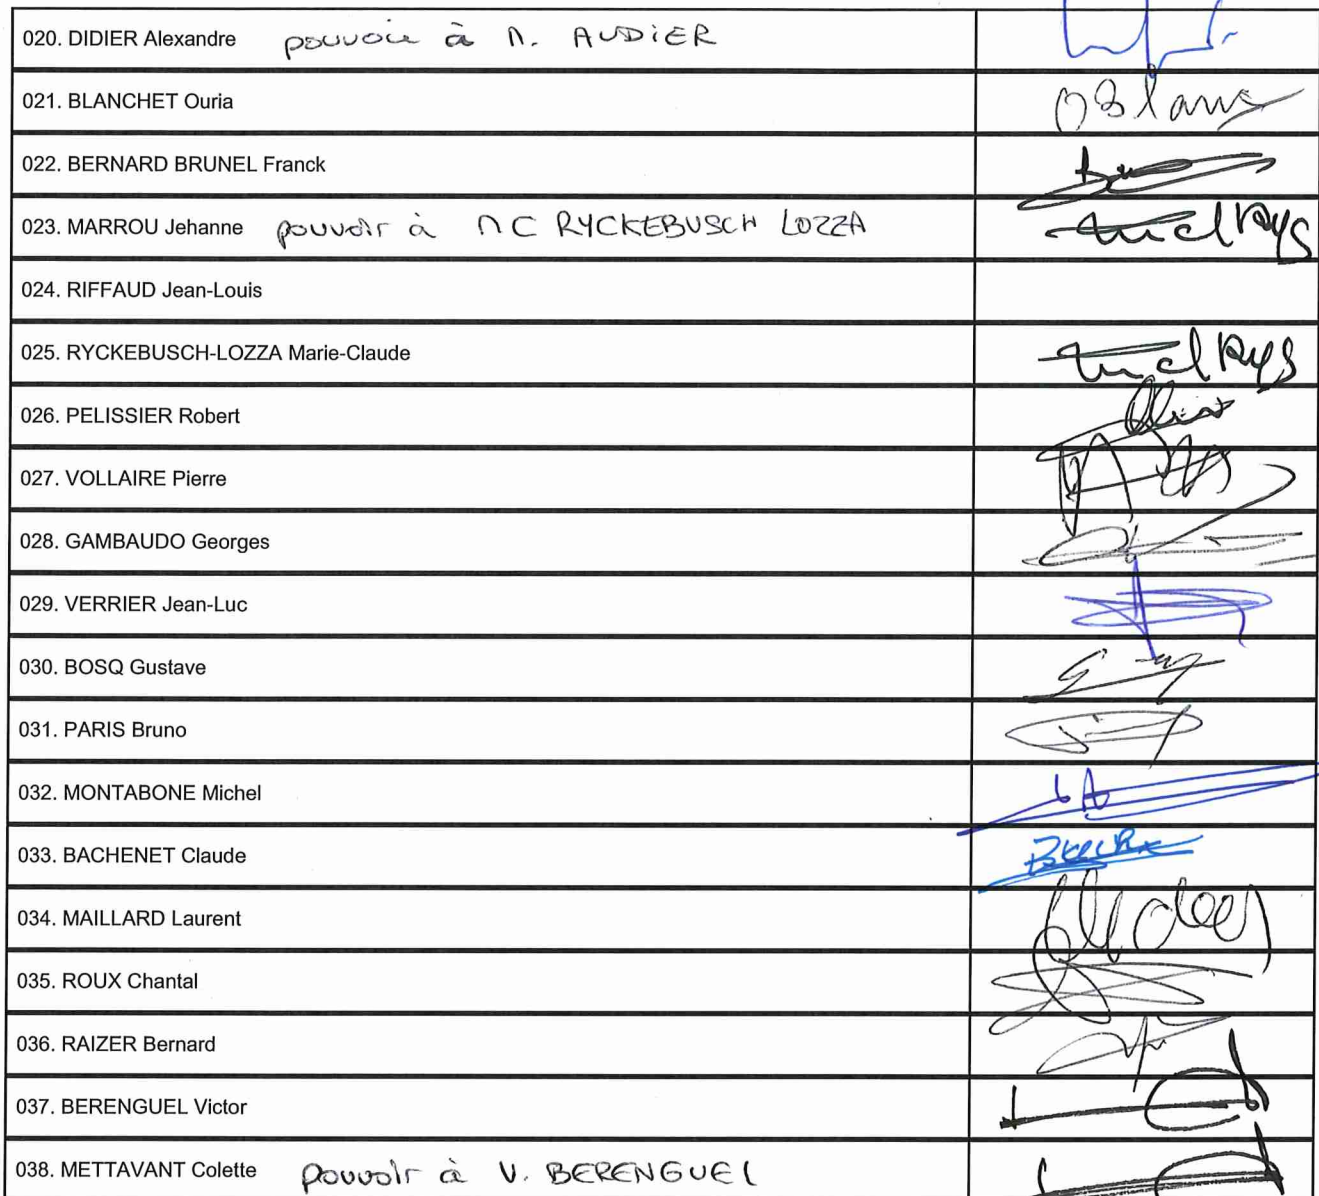 020. DIDIER Alexandre pouvoir à M. AUDIER
021. BLANCHET Ouria OBlanc
022. BERNARD BRUNEL Franck
023. MARROU Jehanne pouvoir à MC RYCKEBUSCH LOZZA
024. RIFFAUD Jean-Louis
025. RYCKEBUSCH-LOZZA Marie-Claude
026. PELISSIER Robert
027. VOLLAIRE Pierre
028. GAMBAUDO Georges
029. VERRIER Jean-Luc
030. BOSQ Gustave
031. PARIS Bruno
032. MONTABONE Michel
033. BACHENET Claude
034. MAILLARD Laurent
035. ROUX Chantal
036. RAIZER Bernard
037. BERENGUEL Victor
038. METTAVANT Colette pouvoir à V. BERENGUEL